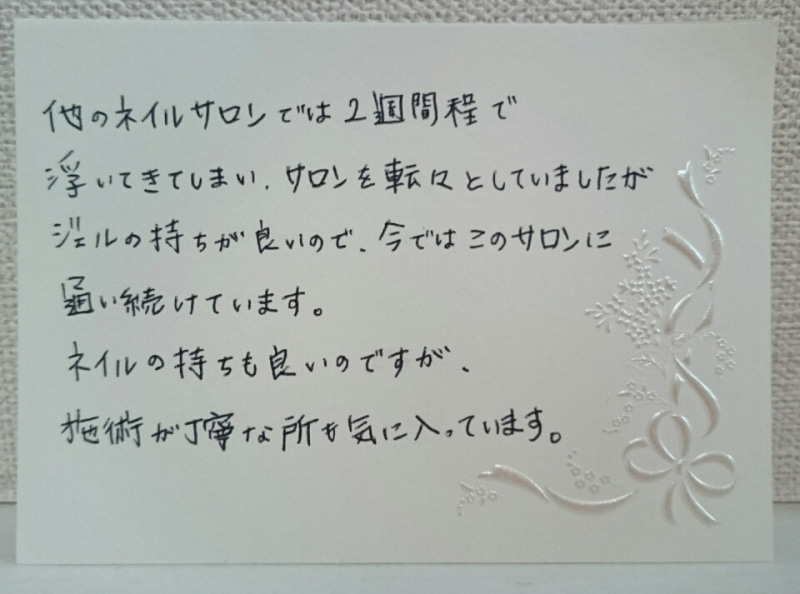 他のネイルサロンでは2週間程で
浮いてきてしまい、サロンを転々としていましたが
ジェルの持ちが良いので、今ではこのサロンに
通い続けています。
ネイルの持ちも良いのですが、
施術が丁寧な所も気に入っています。